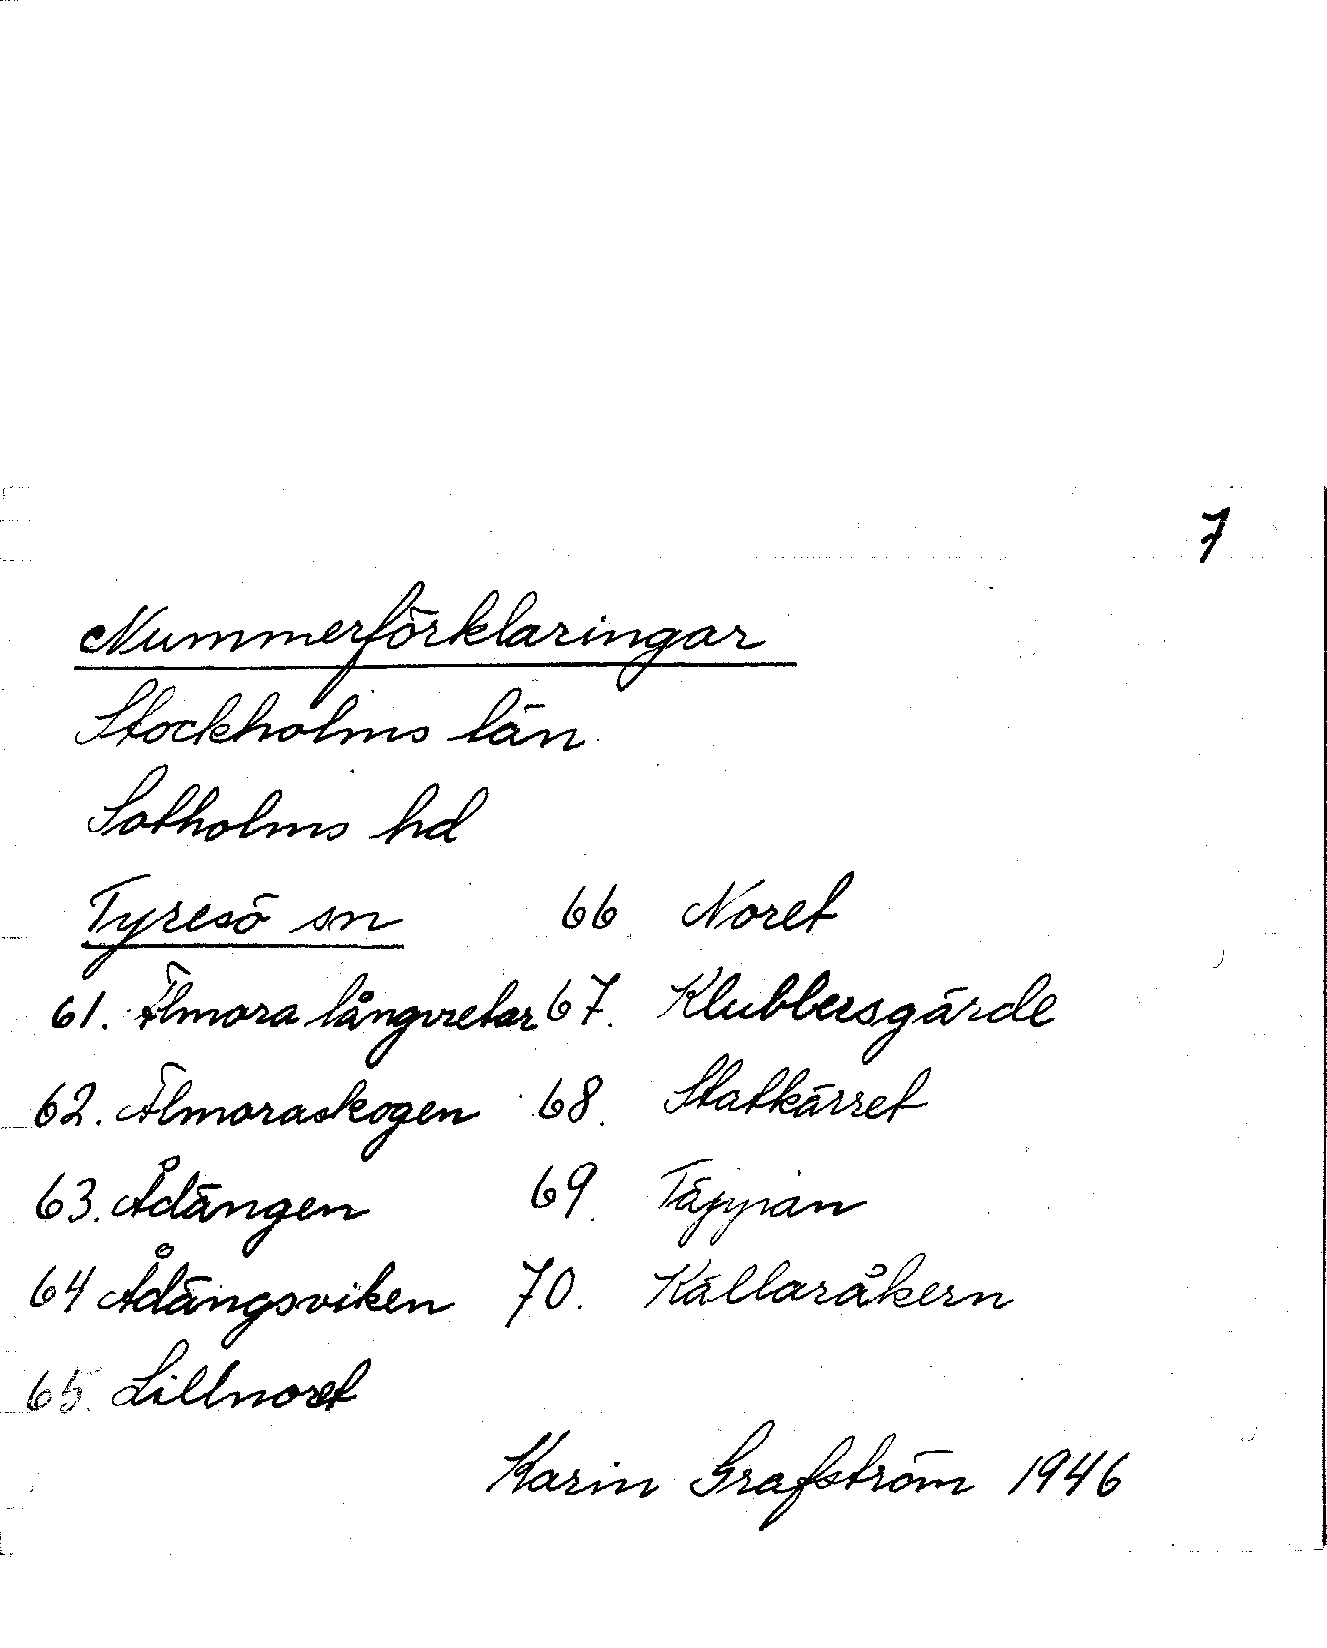 7
Nummerförklaringar
Stockholms län
Sotholms hd
Tyresö sn
61. Älmora långvretar
62. Älmoraskogen
63. Ådängen
64 Ådängsviken
65. Lillnoret
66 Noret
67. Klubbersgärde
68. Statkärret
69. Täppan
70. Källaråkern
Karin Grafström 1946